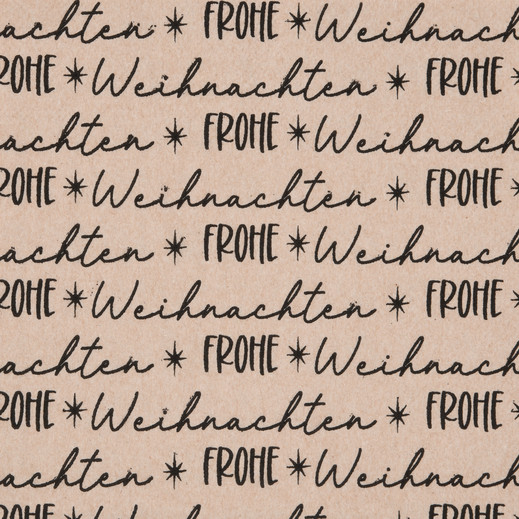 achten * FROHE * Weihnach
ROHE * Weihnachten * FROHE *
achten * FROHE * Weihnach
ROHE * Weihnachten * FROHE *
achten * FROHE * Weihnach
ROHE * Weihnachten * FROHE *
achten * FROHE * Weihnach
ROHE * Weihnachten * FROHE *
achten * FROHE * Weihnach